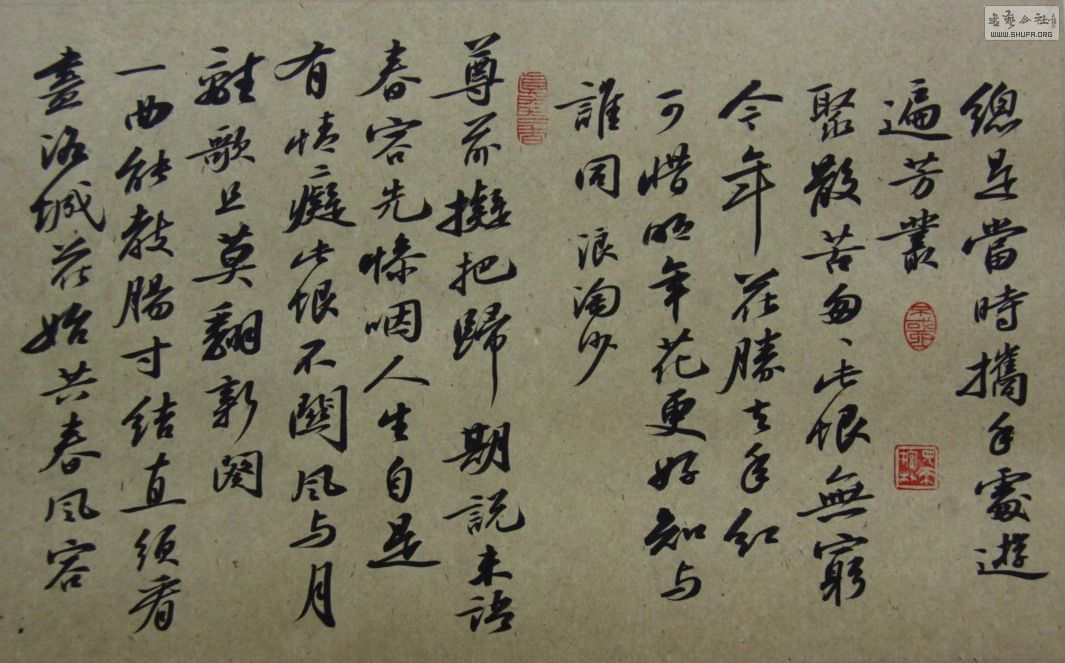 書藝公社
WWW.SHUFA.ORG
總是當時攜手處遊
遍芳叢
聚散苦匆〻此恨無窮
今年花勝去年紅
可惜明年花更好知与
誰同 浪淘沙
尊前擬把歸期説未語
春容先慘咽人生自是
有情癡此恨不關風与月
離歌且莫翻新闋
一曲能教腸寸結直須看
盡洛城花始共春風容